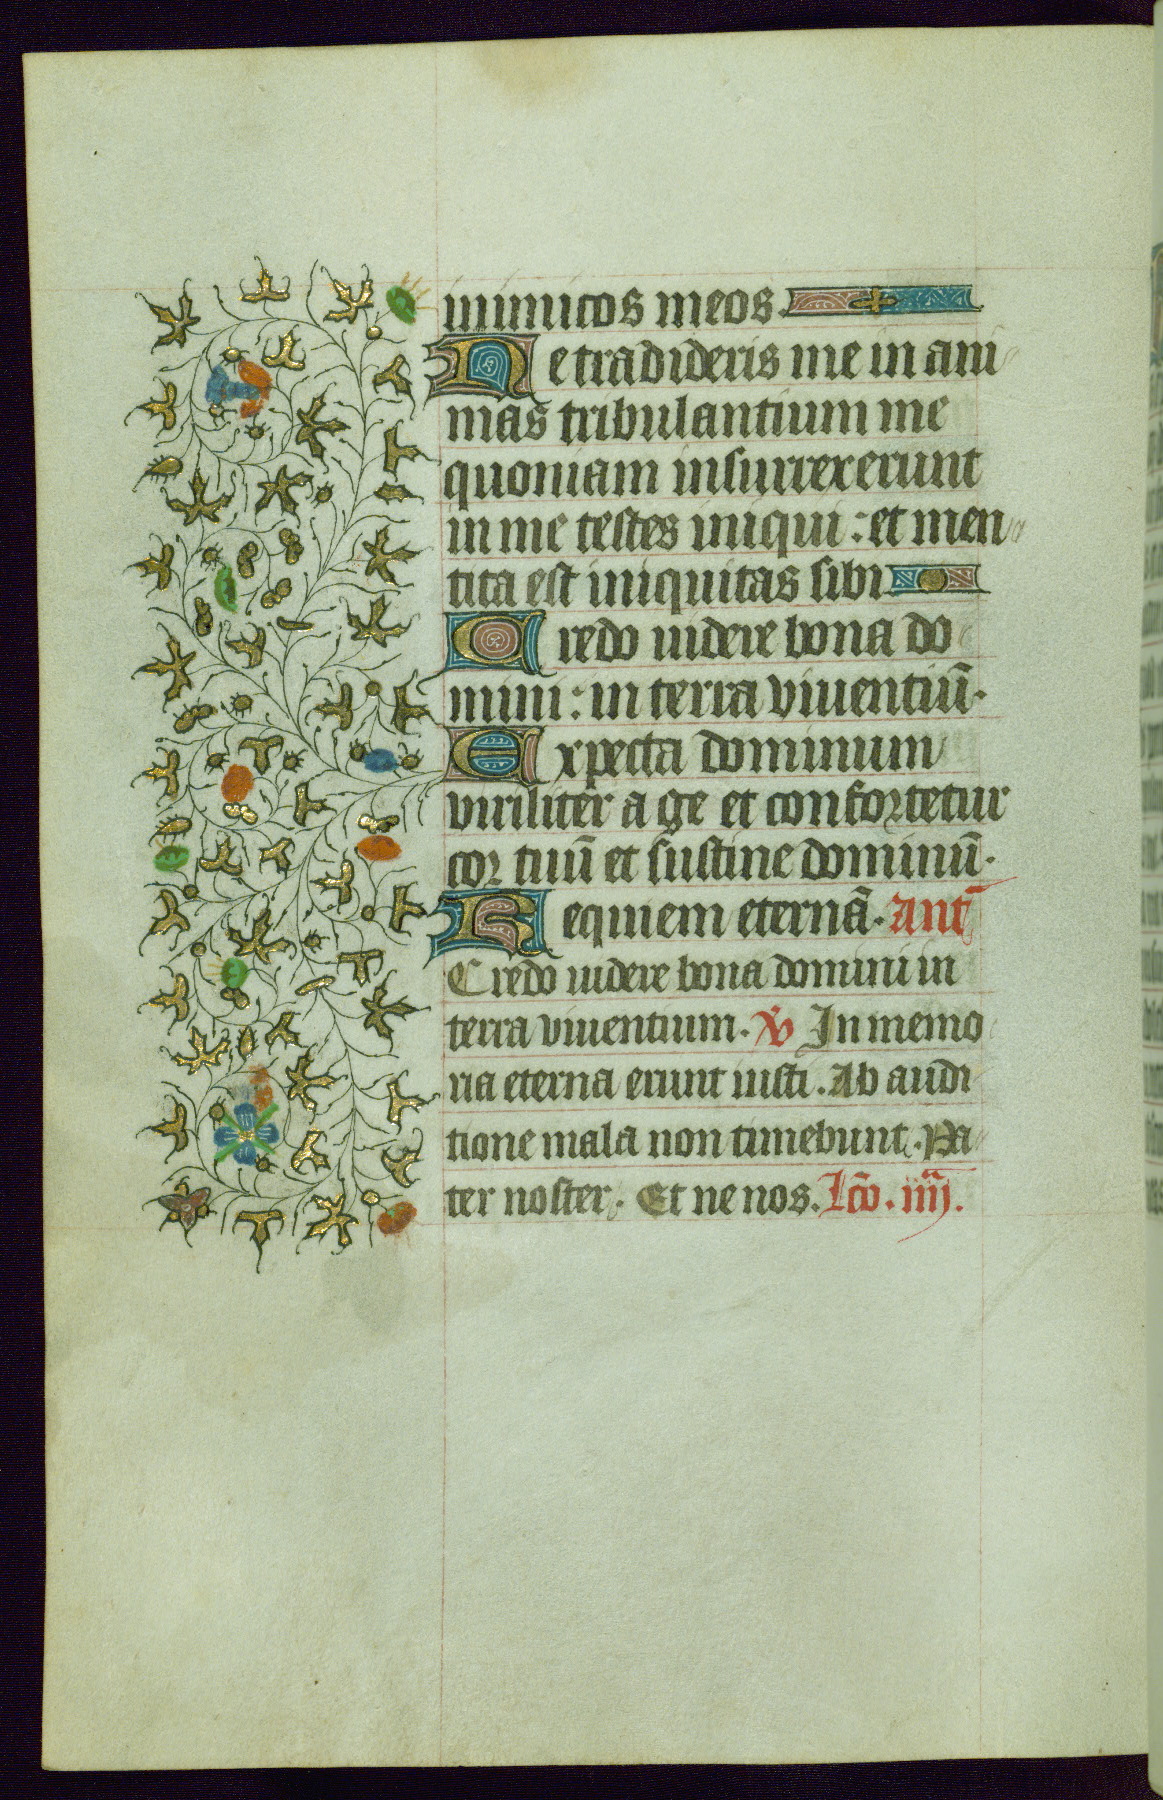 inimicos meos.
Ne tradideris me in ani
mas tribulantium me
quoniam insurrexerunt
in me testes iniqui : et men
tita est iniquitas sibi
Credo uidere bona do
mini : in terra viuentiū.
Expecta dominum
viriliter age et confortetur
cor tuū et sustine dominū.
Requiem eternā. Ant̄
Credo uidere bona domini in
terra viuentium. ℣ In memo
ria eterna erunt iusti. Ab audi
tione mala non timebunt. Pa
ter noster. Et ne nos. Lc̄o. iiij.